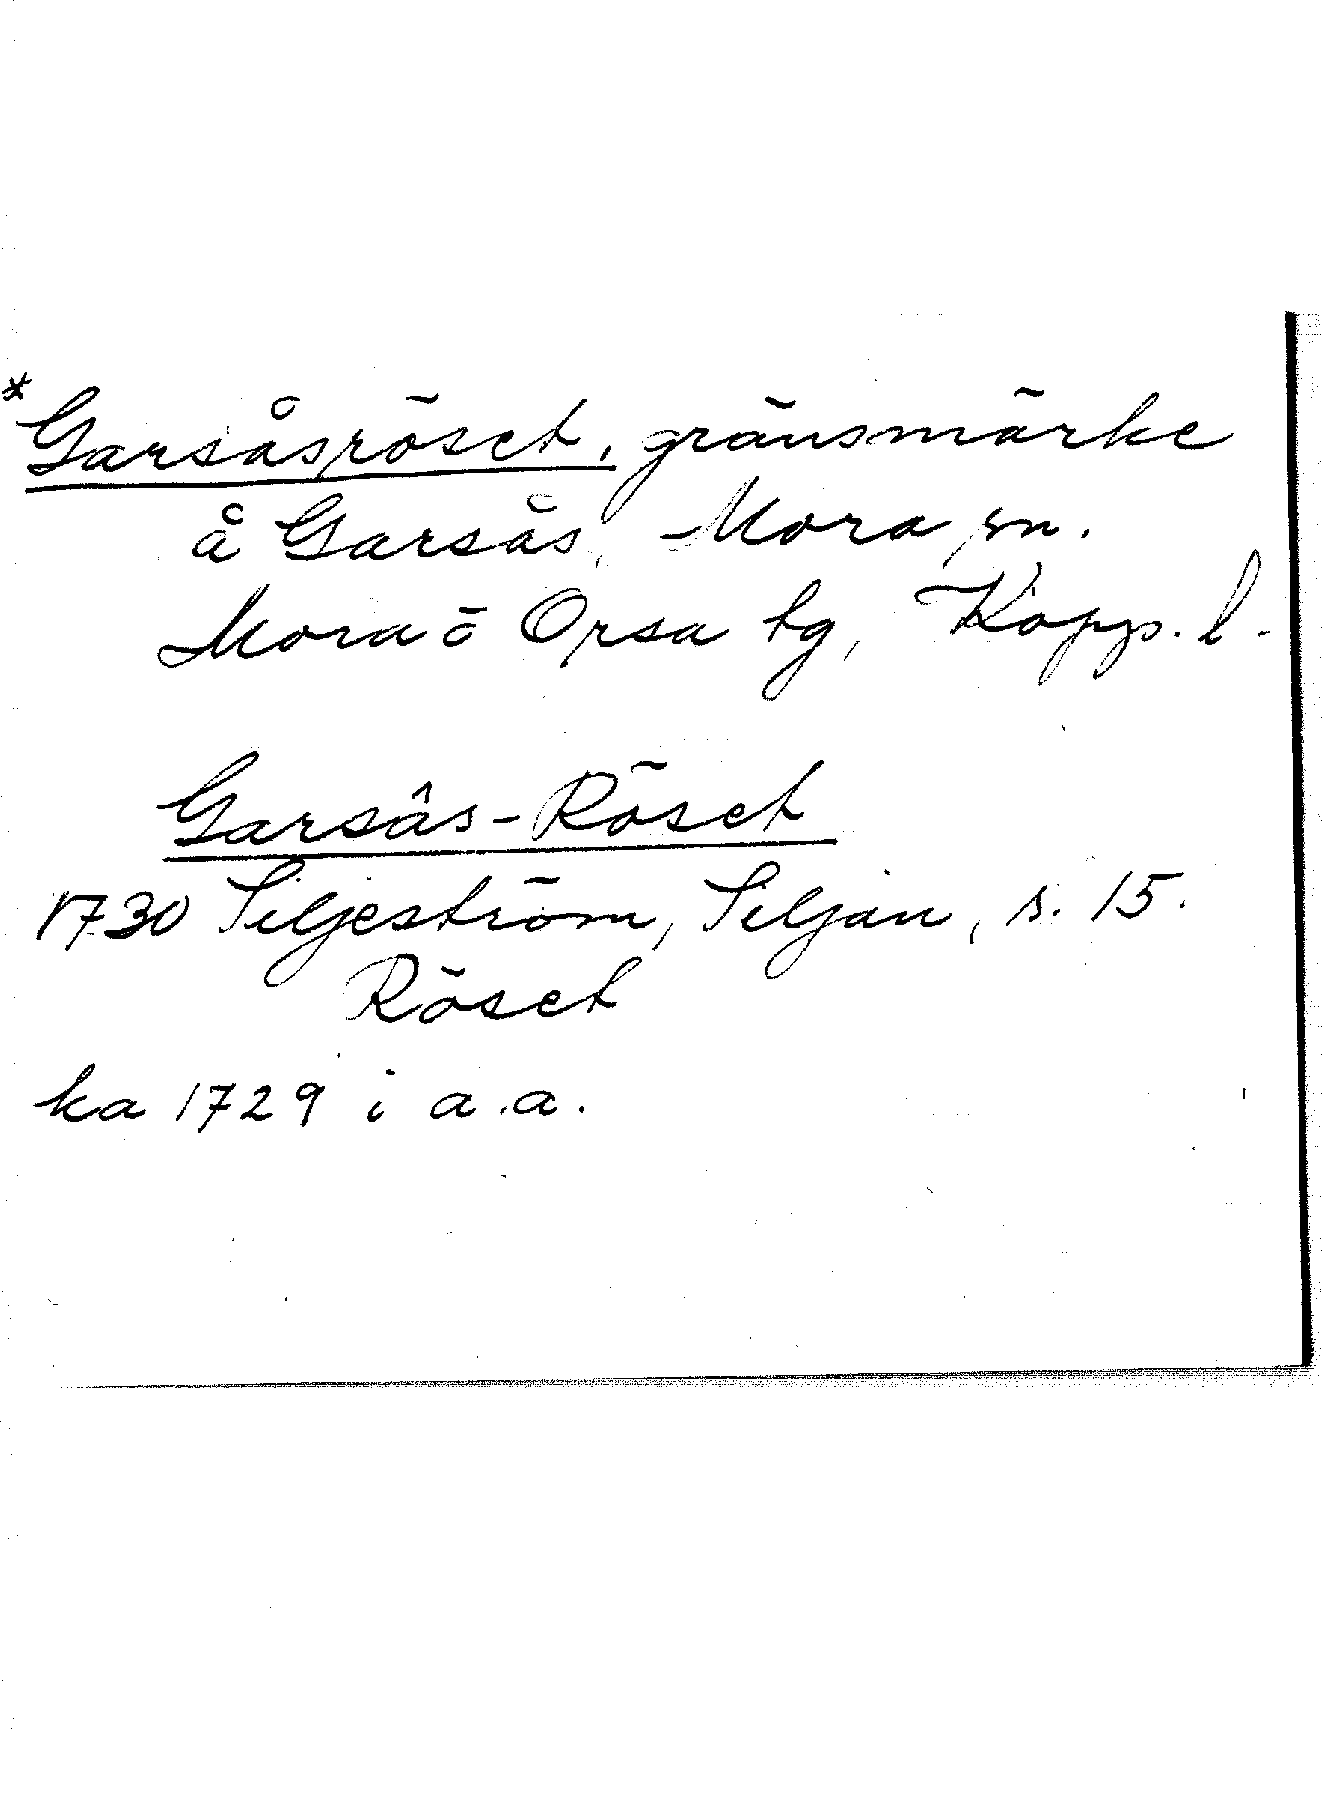 *Garsåsröset, gränsmärke
å Garsås, Mora sn.
Mora ö Orsa tg, Kopp. l.
Garsås-Röset
1730 Siljeström, Siljan, s. 15.
Röset
ka 1729 i a.a.